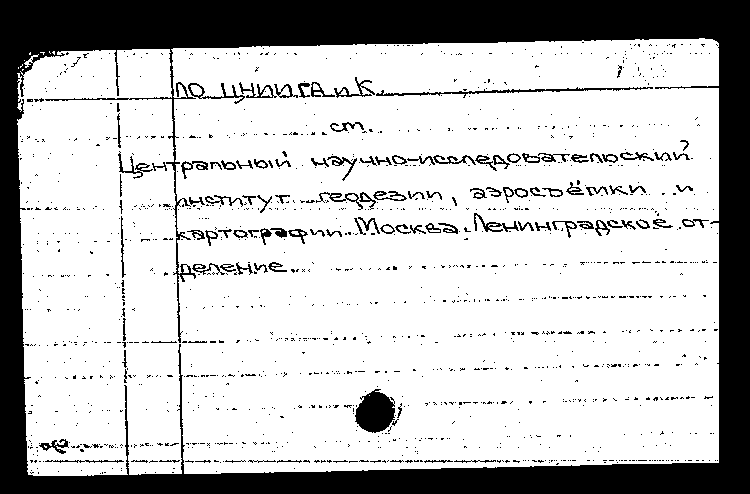 ЛО ЦНИИГА и К.
ст.
Центральный научно-исследовательский
институт геодезии, аэросъёмки и
картографии. Москва. Ленинградское от-
деление.